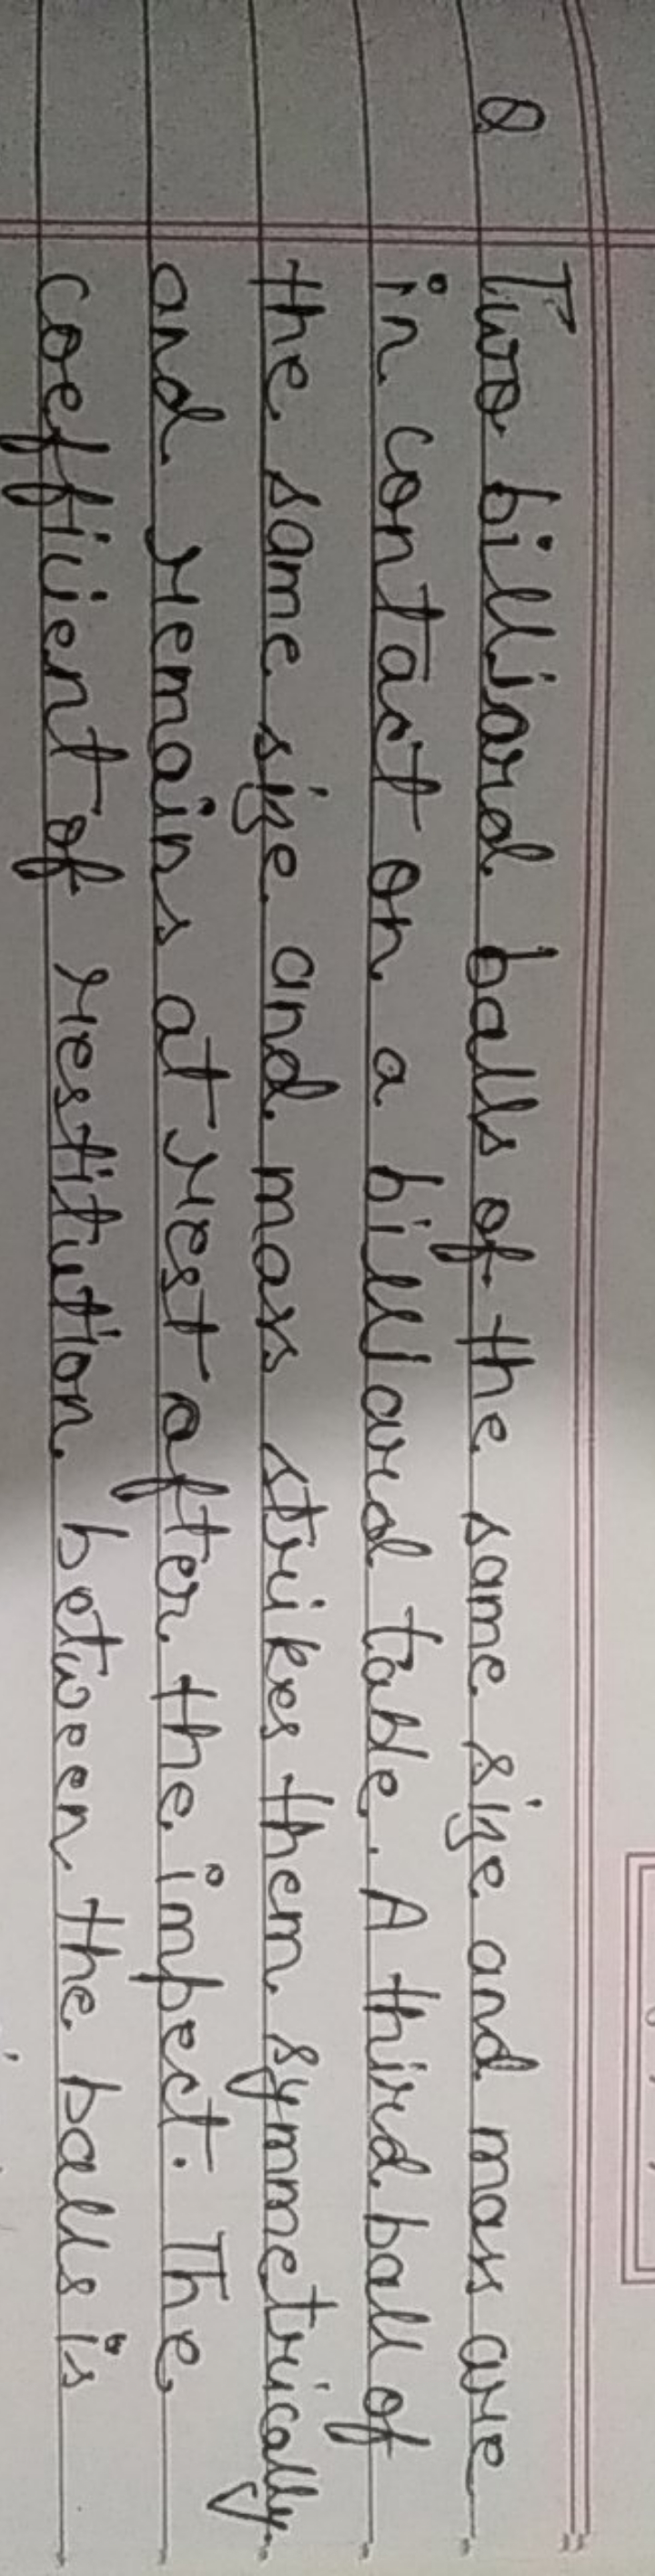 Q Two billiard balls of the same size and mass are
in contact on a billiard table. A third ball of
the same size and mass strikes them symmetrically
and remains at rest after the impect. The
coefficient of restitution between the balls is